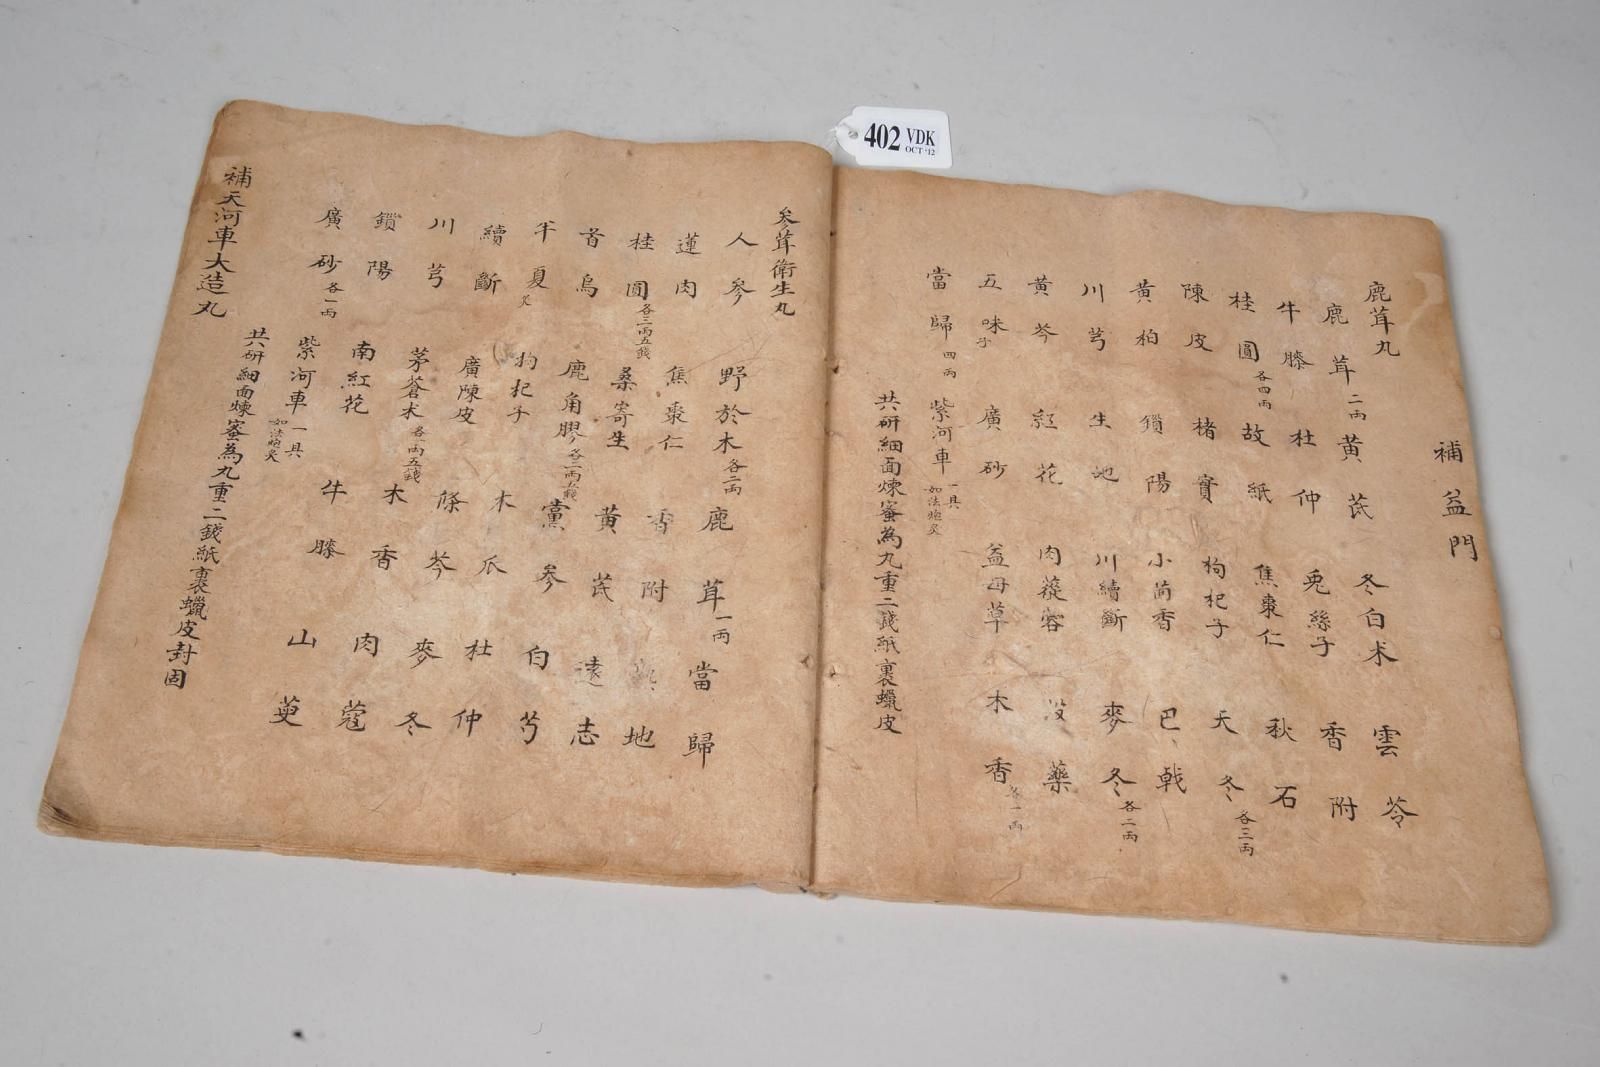 補益門
鹿茸丸
鹿茸二兩 黃芪 冬白朮 雲苓
牛膝 杜仲 兎絲子 香附
桂圓各四兩 故紙 焦棗仁 秋石
陳皮 楮實 枸杞子 天冬各三兩
黃柏 鎖陽 小茴香 巴戟
川芎 生地 川續斷 麥冬各二兩
黃芩 紅花 肉蓯蓉 沒藥
五味子 廣砂 益母草 木香各一兩
當歸四兩 紫河車一具如法炮炙
共研細面煉蜜為丸重二錢紙裹蠟皮
參茸衛生丸
人參 野於木各二兩 鹿茸一兩 當歸
蓮肉 焦棗仁 香附 熟地
桂圓各三兩五錢 桑寄生 黃芪 遠志
首烏 鹿角膠各二兩五錢 黨參 白芍
半夏炙 枸杞子 木瓜 杜仲
續斷 廣陳皮 條芩 麥冬
川芎 茅蒼朮各一兩五錢 木香 肉蔻
鎖陽 南紅花 牛膝 山萸
廣砂各一兩 紫河車一具如法炮炙
共研細面煉蜜為丸重二錢紙裹蠟皮封固
補天河車大造丸
402 VDK
OCT '12